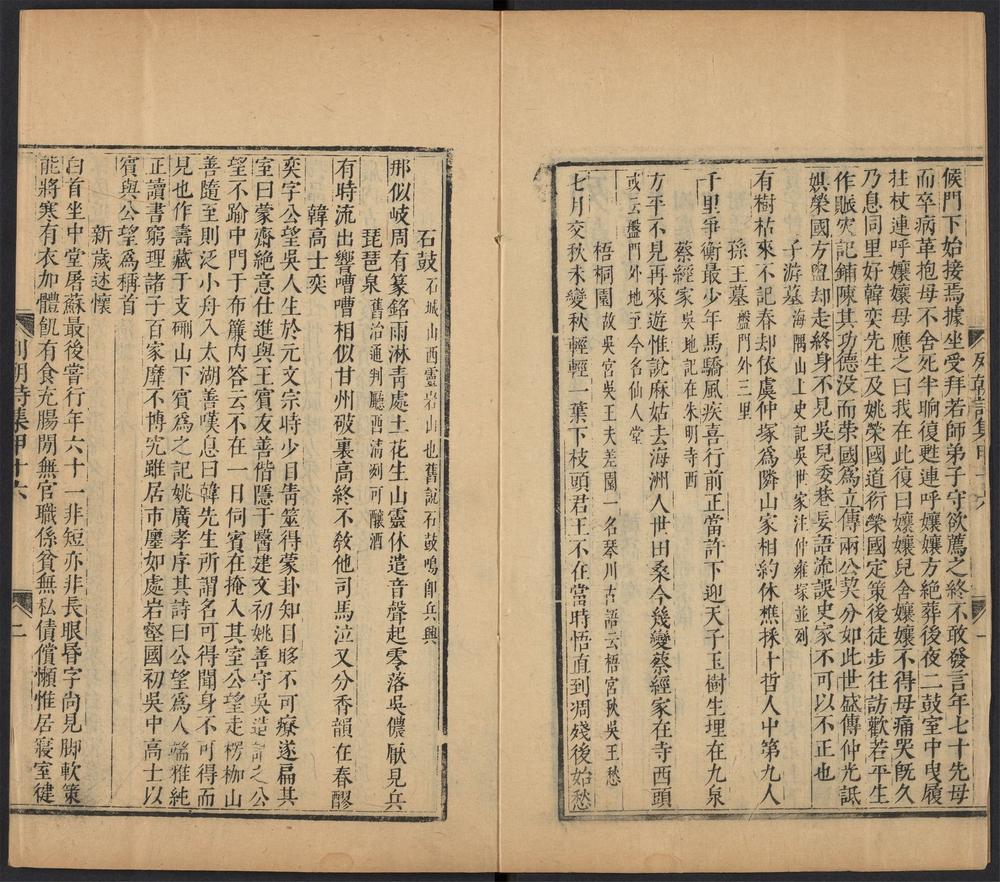 候門下始接焉據坐受拜若師弟子守欲薦之終不敢發言年七十先母
而卒病革抱母不舍死半晌復甦連呼孃孃方絶葬後夜二鼓室中曳履
拄杖連呼孃孃母應之曰我在此復曰孃孃兒舍孃孃不得母痛哭旣久
乃息同里好韓奕先生及姚榮國道衍榮國定策後徒步往訪歡若平生
作賑災記鋪陳其功德没而榮國爲立傳兩公契分如此世盛傳仲光詆
娸榮國方盥却走終身不見吳兒委巷妄語流誤史家不可以不正也
子游墓海隅山上史記吳世家注仲雍塚並列
有樹枯來不記春却依虞仲塚爲隣山家相約休樵採十哲人中第九人
孫王墓盤門外三里
千里爭衡最少年馬驕風疾喜行前正當許下迎天子玉樹生埋在九泉
蔡經家吳地記在朱明寺西
方平不見再來遊惟說麻姑去海洲人世田桑今幾變蔡經家在寺西頭
或云盤門外地至今名仙人堂
梧桐園故吳宮吳王夫差園一名琴川古語云梧宮秋吳王愁
七月交秋未變秋輕輕一葉下枝頭君王不在當時悟直到凋殘後始愁
列朝詩集甲十六
一
石鼓石城山西靈岩山也舊説石鼓鳴卽兵興
那似岐周有篆銘雨淋靑處土花生山靈休遣音聲起零落吳儂厭見兵
琵琶泉舊治通判廳西淸冽可釀酒
有時流出響嘈嘈相似甘州破裏高終不敎他司馬泣又分香韻在春醪
韓高士奕
奕字公望吳人生於元文宗時少目靑筮得蒙卦知目眵不可療遂扁其
室曰蒙齋絶意仕進與王賓友善偕隱于醫建文初姚善守吳造請之公
望不踰中門于布簾内答云不在一日伺賓在掩入其室公望走楞枷山
善隨至則泛小舟入太湖善嘆息曰韓先生所謂名可得聞身不可得而
見也作壽藏于支硎山下賓爲之記姚廣孝序其詩曰公望爲人端雅純
正讀書窮理諸子百家靡不博究雖居市廛如處岩壑國初吳中高士以
賓與公望爲稱首
新歲述懷
白首坐中堂屠蘇最後嘗行年六十一非短亦非長眼昬字尚見脚軟策
能將寒有衣加體飢有食充腸閒無官職係貧無私債償懶惟居寢室健
列朝詩集甲十六
二